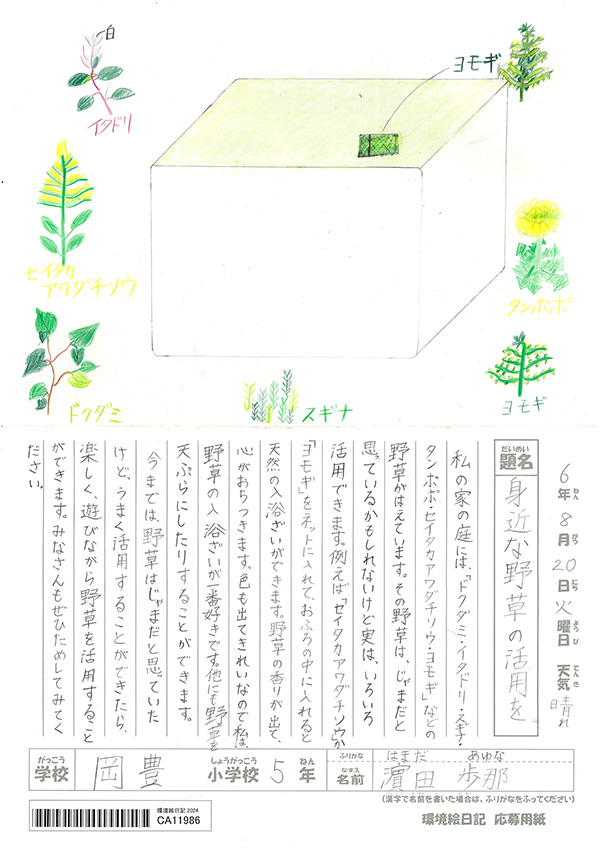 白
イタドリ
ヨモギ
セイタカ
アワダチソウ
タンポポ
ドクダミ
スギナ
ヨモギ
6年ねん8月がつ20日にち火曜日ようび 天気てんき晴れ
だいめい
題名 身近な野草の活用を
私の家の庭には、「ドクダミ・イタドリ・スギナ・
タンポポ・セイタカアワダチソウ・ヨモギ」などの
野草がはえています。その野草は、じゃまだと
思っているかもしれないけど実は、いろいろ
活用できます。例えば「セイタカアワダチソウ」か
「ヨモギ」をネットに入れて、おふろの中に入れると
天然の入浴ざいができます。野草の香りが出て、
心がおちつきます。色も出てきれいなので私は、
野草の入浴ざいが一番好きです。他にも野草を
天ぷらにしたりすることができます。
今までは、野草はじゃまだと思っていた
けど、うまく活用することができたら、
楽しく、遊びながら野草を活用すること
ができます。みなさんもぜひためしてみてく
ださい。
がっこう しょうがっこう ねん ふりがな はまだ あゆな
学校 岡豊 小学校 5年 なまえ 名前 濵田 歩那
(漢字で名前を書いた場合は、ふりがなをふってください)
環境絵日記 2024
CA11986
環境絵日記 応募用紙